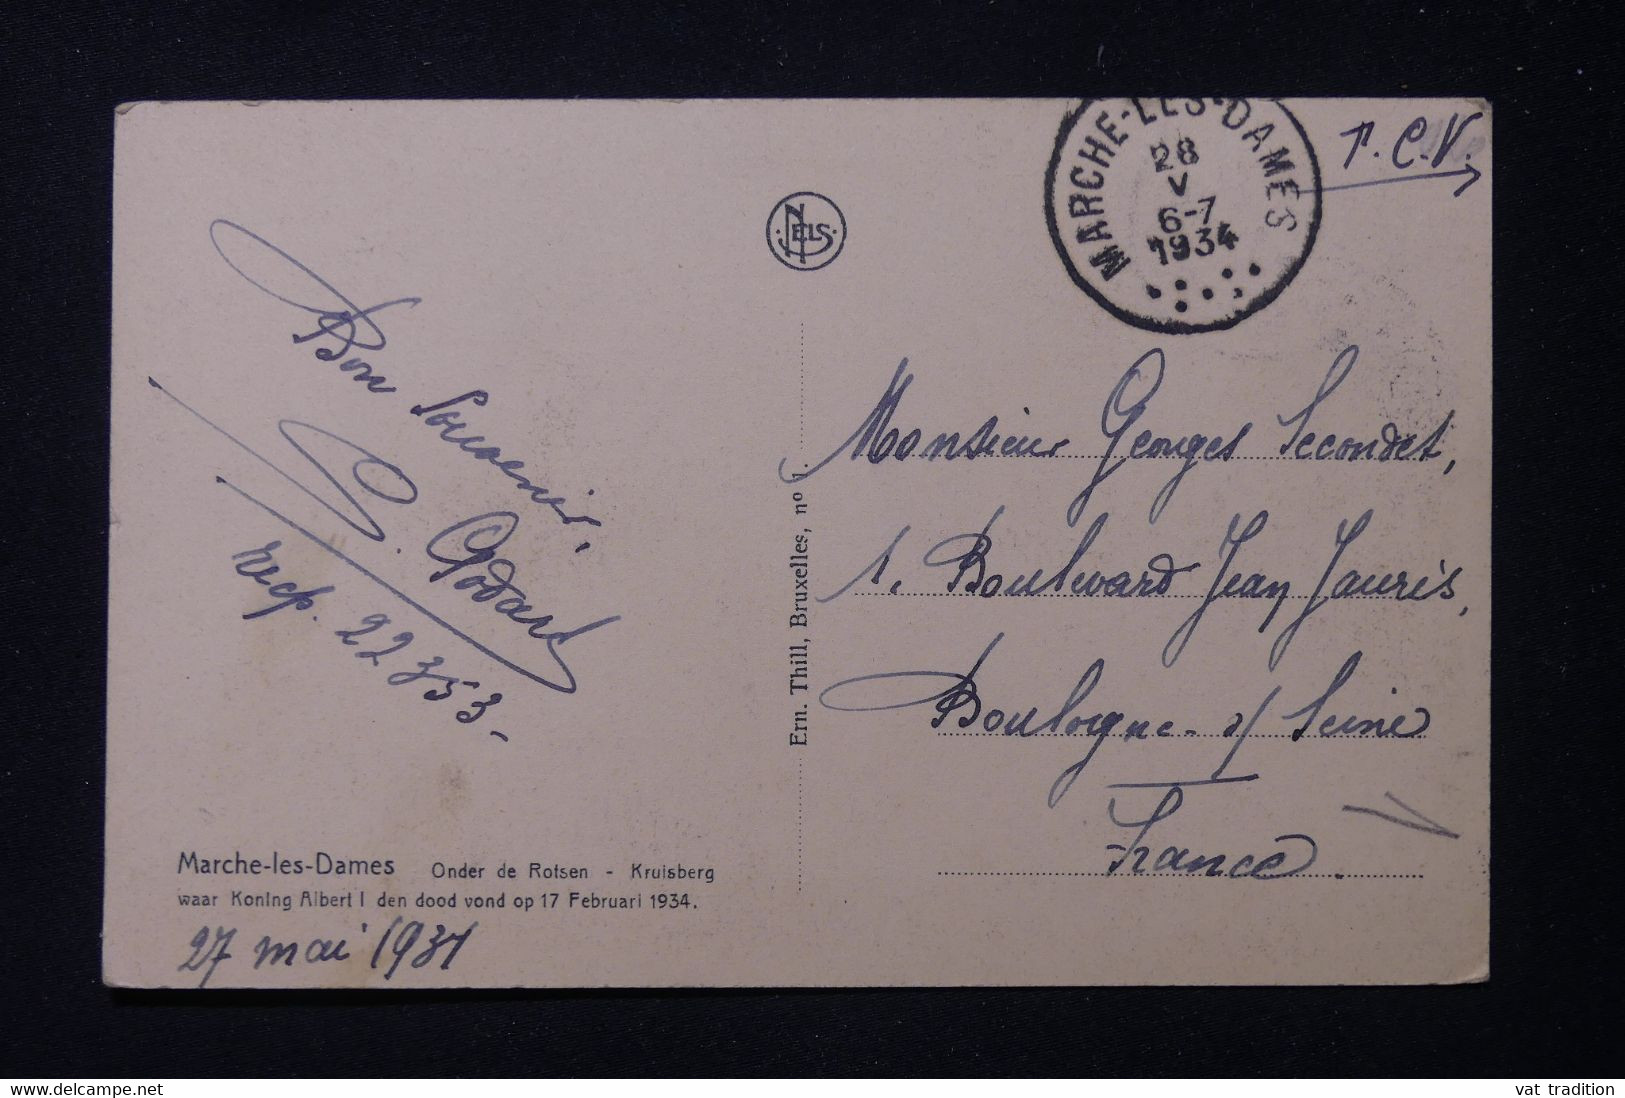 MARCHE-LES-DAMES
28
V
6-7
1934
T.C.V.
NELS
Bon Souvenir,
G. Godard
recp. 22353-
Monsieur Georges Secondet,
1. Boulevard Jean Jaurès,
Boulogne- s/ Seine
France.
Ern. Thill, Bruxelles, nº 1.
Marche-les-Dames Onder de Rotsen - Kruisberg
waar Koning Albert I den dood vond op 17 Februari 1934.
27 mai 1934
www.delcampe.net
vat tradition